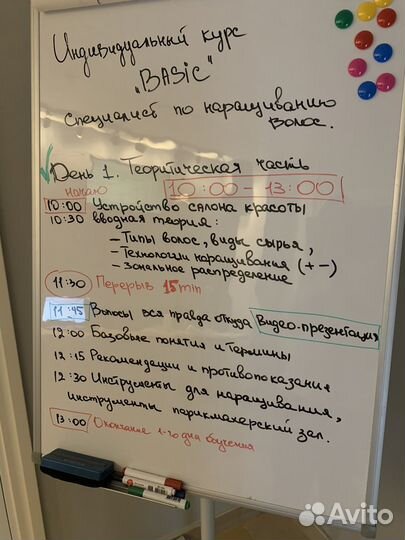 Индивидуальный курс
"BASIC"
Специалист по наращиванию
волос.
День 1. Теоритическая часть
начало
10:00 - 13:00
10:00 Устройство салона красоты
10:30 Вводная теория:
- Типы волос, виды сырья,
- Технологии наращивания (+ -)
- Зональное распределение
11:30 Перерыв 15 min
11:45 Волосы вся правда откуда Видео-презентация
12:00 Базовые понятия и термины
12:15 Рекомендации и противопоказания
12:30 Инструменты для наращивания,
инструменты парикмахерский зал.
13:00 Окончание 1-го дня обучения
Avito